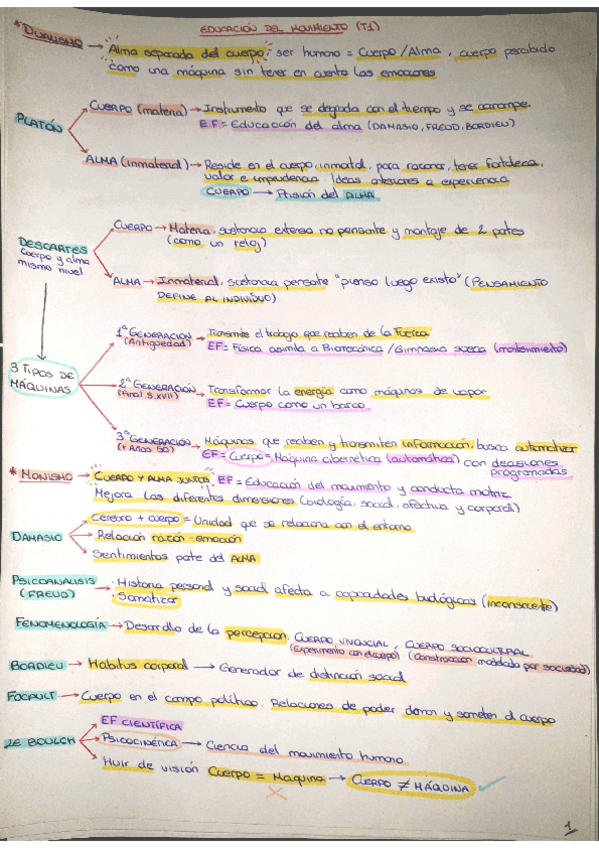 EDUCACIÓN DEL MOVIMIENTO (T1)
* DUALISMO → Alma separada del cuerpo: ser humano = Cuerpo / Alma, cuerpo percibido
como una máquina sin tener en cuenta las emociones
PLATÓN
CUERPO (materia) → Instrumento que se degrada con el tiempo y se corrompe.
EF = Educación del alma (DAMASIO, FREUD, BORDIEU)
ALMA (inmaterial) → Reside en el cuerpo, inmortal, para razonar, tener fortaleza,
valor e imprudencia. Ideas anteriores a experiencia
CUERPO → Prisión del ALMA
DESCARTES
Cuerpo y alma
mismo nivel
CUERPO → Materia, sustancia extensa no pensante y montaje de 2 partes
(como un reloj)
ALMA → Inmaterial, sustancia pensante "pienso luego existo" (PENSAMIENTO
DEFINE AL INDIVIDUO)
3 TIPOS DE
MÁQUINAS
1ª GENERACIÓN (Antigüedad) → Transmite el trabajo que reciben de la Fuerza
EF = Física asimila a Biomecánica / Gimnasia sueca (mantenimiento)
2ª GENERACIÓN (Final S.XVII) → Transformar la energía como máquinas de vapor
EF = Cuerpo como un barco
3ª GENERACIÓN (+ Años 50) → Máquinas que reciben y transmiten información, busca automatizar
EF = Cuerpo = Máquina cibernética (automática) con decisiones
programadas
* MONISMO → CUERPO Y ALMA JUNTOS EF = Educación del movimiento y conducta motriz
Mejora las diferentes dimensiones (biología, social, afectiva y corporal)
DAMASIO
Cerebro + cuerpo = Unidad que se relaciona con el entorno
Relación razón-emoción
Sentimientos parte del ALMA
PSICOANALISIS (FREUD) → · Historia personal y social afecta a capacidades biológicas (inconsciente)
· Somatizar
FENOMENOLOGÍA → Desarrollo de la percepción. CUERPO VIVENCIAL, CUERPO SOCIOCULTURAL
(Experimento con el cuerpo) (Construcción modelada por sociedad)
BORDIEU → Habitus corporal → Generador de distinción social
FOCAULT → Cuerpo en el campo político. Relaciones de poder doman y someten el cuerpo
LE BOULCH
EF CIENTÍFICA
PSICOCINÉTICA → Ciencia del movimiento humano
Huir de visión Cuerpo = Maquina → CUERPO ≠ MÁQUINA
1